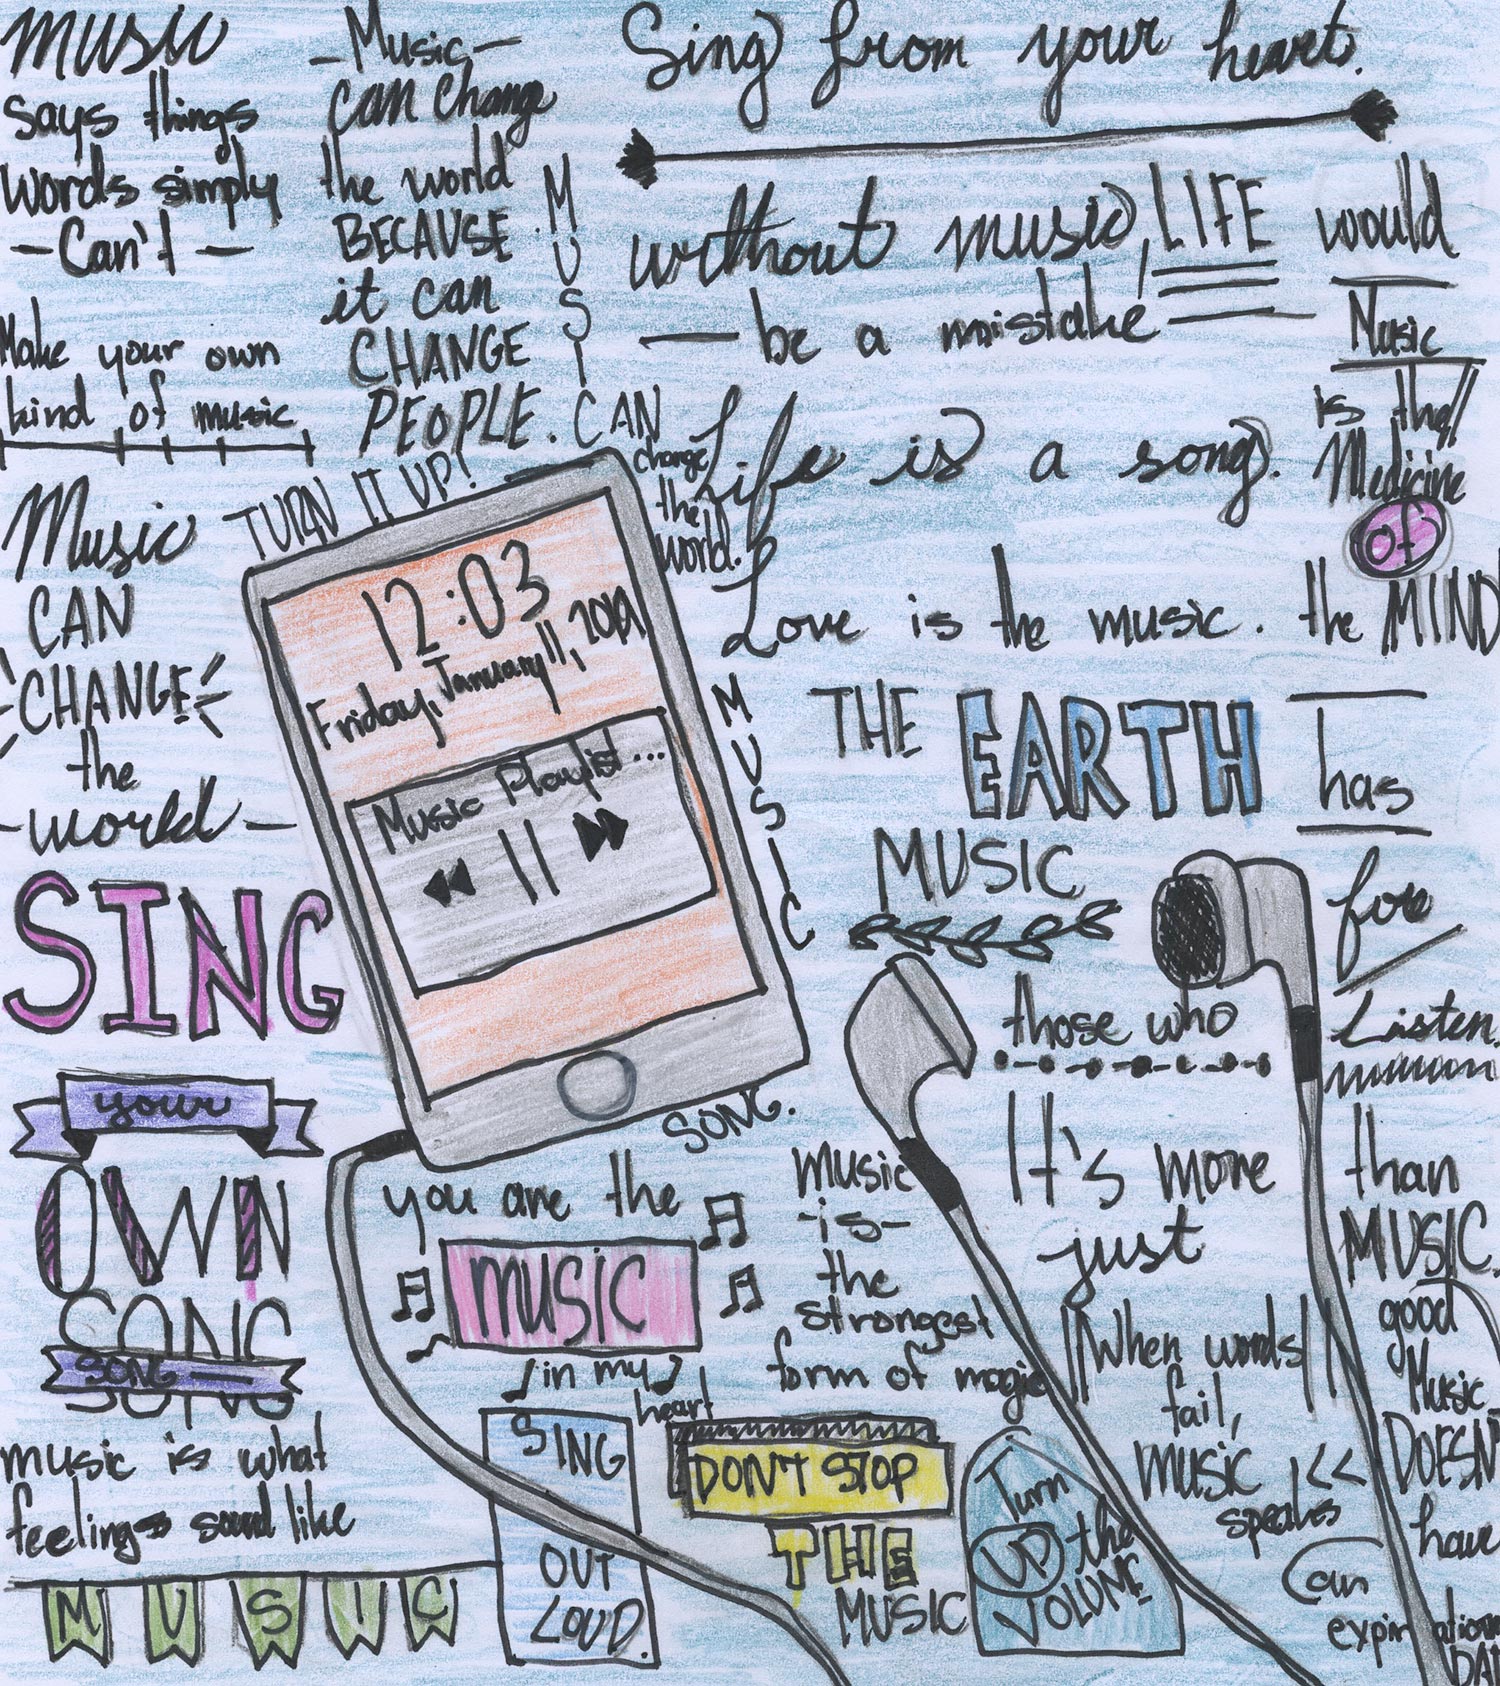 music
says things
words simply
-Can't-
Make your own
kind of music
Music
CAN
CHANGE
the
-world-
SING
your
OWN
SONG
SONG
music is what
feelings sound like
MUSIC
-Music-
can change
the world
BECAUSE
it can
CHANGE
PEOPLE.
MUSIC
CAN
change
the
world.
TURN IT UP!
12:03
Friday, January 11, 2019
Music Playlist...
MUSIC
SONG.
Sing from your heart.
without music, LIFE would
be a mistake
Life is a song.
Love is the music.
Music
is the
Medicine
of
the MIND
THE EARTH has
MUSIC for
those who Listen.
It's more than
just MUSIC.
you are the
music
in my
heart
music
-is-
the
strongest
form of magic
When words
fail,
music
speaks
good
Music
DOESN'T
have
an
expiration
DAT
SING
OUT
LOUD.
DON'T STOP
THE
MUSIC
Turn
UP the
VOLUME